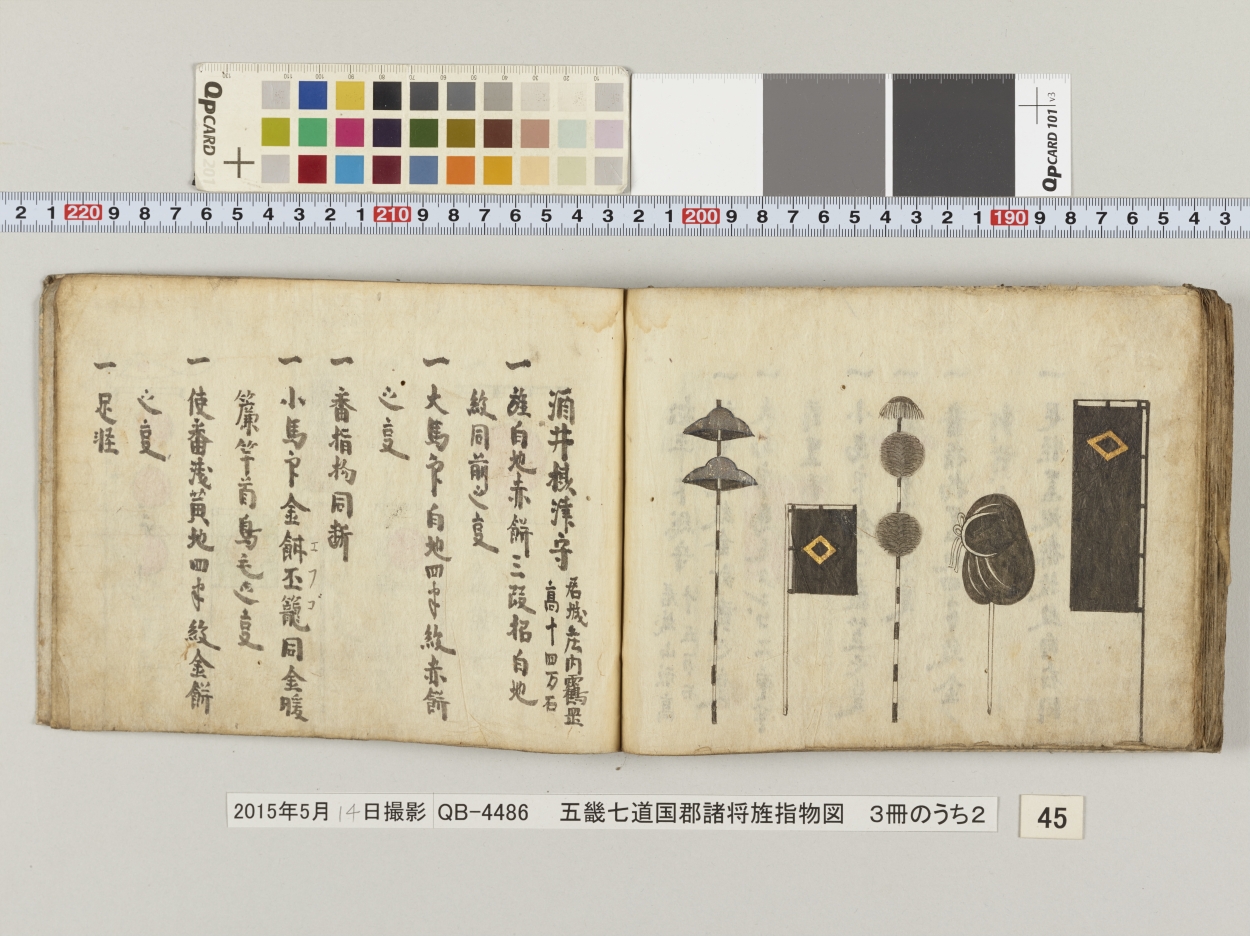 QpCARD 201
QpCARD 101 v3
2 1 220 9 8 7 6 5 4 3 2 1 210 9 8 7 6 5 4 3 2 1 200 9 8 7 6 5 4 3 2 1 190 9 8 7 6 5 4 3
酒井摂津守
居城庄内鶴罡
高十四万石
一 旌白地赤餅三段招白地
紋同前之
一 大馬印白地四半紋赤餅
之
一 番指物同断
一 小馬印金餌丕籠同金暖
エフゴ
簾竿首鳥毛之
一 使番浅黄地四半紋金餅
之
一 足軽
2015年5月14日撮影 QB-4486 五畿七道国郡諸将旌指物図 3冊のうち2
45